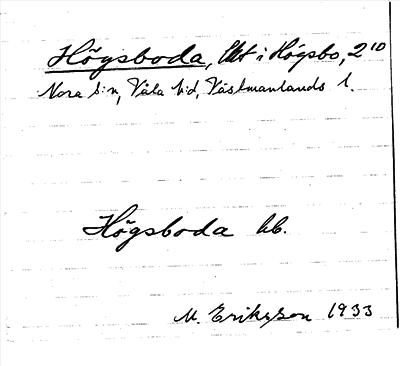 Högsboda, lht i Högsbo, 2 10
Nora s:n, Våla hd, Västmanlands l.
Högsboda hb.
M. Eriksson 1933